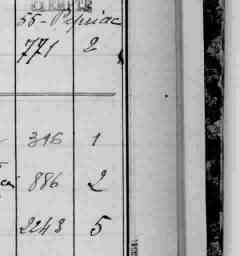 EXEMPTÉ
55 - Pipriac
771 2
346 1
886 2
2243 5